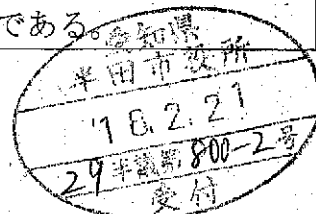 である。
愛知県
半田市役所
'18.2.21
29半議第800-2号
受付